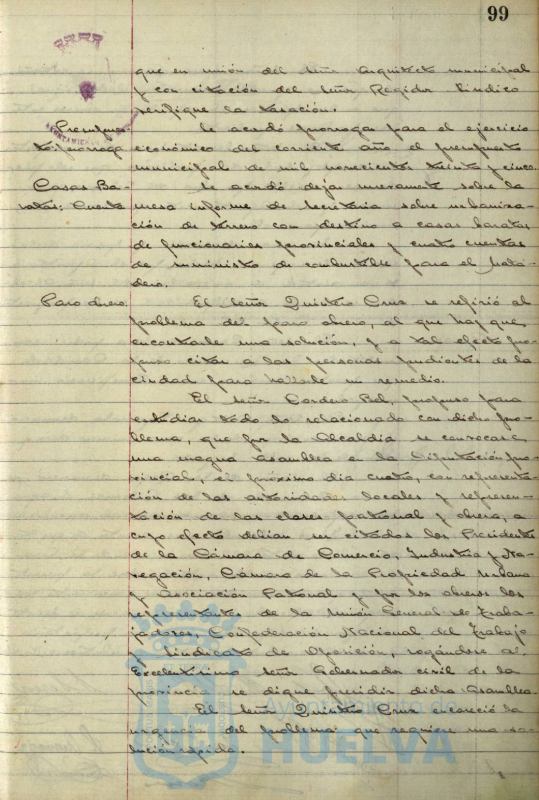 99
que en unión del señor Arquitecto municipal
y con citación del señor Regidor Síndico
verifique la tasación.
Presupues-
to: prorroga
Se acordó prorrogar para el ejercicio
económico del corriente año el presupuesto
municipal de mil novecientos treinta y cinco.
Casas Ba-
ratas: Cuenta
Se acordó dejar nuevamente sobre la
mesa informe de Secretaria sobre urbaniza-
ción de terreno con destino a casas baratas
de funcionarios provinciales y cuatro cuentas
de suministro de combustible para el Mata-
dero.
Paro obrero.
El señor Quintero Cruz se refirió al
problema del paro obrero, al que hay que
encontrarle una solución, y a tal efecto pro-
puso citar a las personas pudientes de la
ciudad para hallarle un remedio.
El señor Cordero Bel, propuso para
estudiar todo lo relacionado con dicho pro-
blema, que por la Alcaldía se convocase
una magna asamblea en la Diputación pro-
vincial, el próximo dia cuatro, con representa-
ción de las autoridades locales y represen-
tación de las clases patronal y obrera, a
cuyo efecto debian ser citados los Presidentes
de la Cámara de Comercio, Industria y Na-
vegación, Cámara de la Propiedad Urbana
y Asociación Patronal y por los obreros los
representantes de la Unión General de Traba-
jadores, Confederación Nacional del Trabajo
y Sindicato de Oposición, rogándose al
Excelentisimo señor Gobernador civil de la
provincia se digne presidir dicha Asamblea.
El señor Quintero Cruz encareció la
urgencia del problema que requiere una so-
lución rápida.
Ayuntamiento de
HUELVA